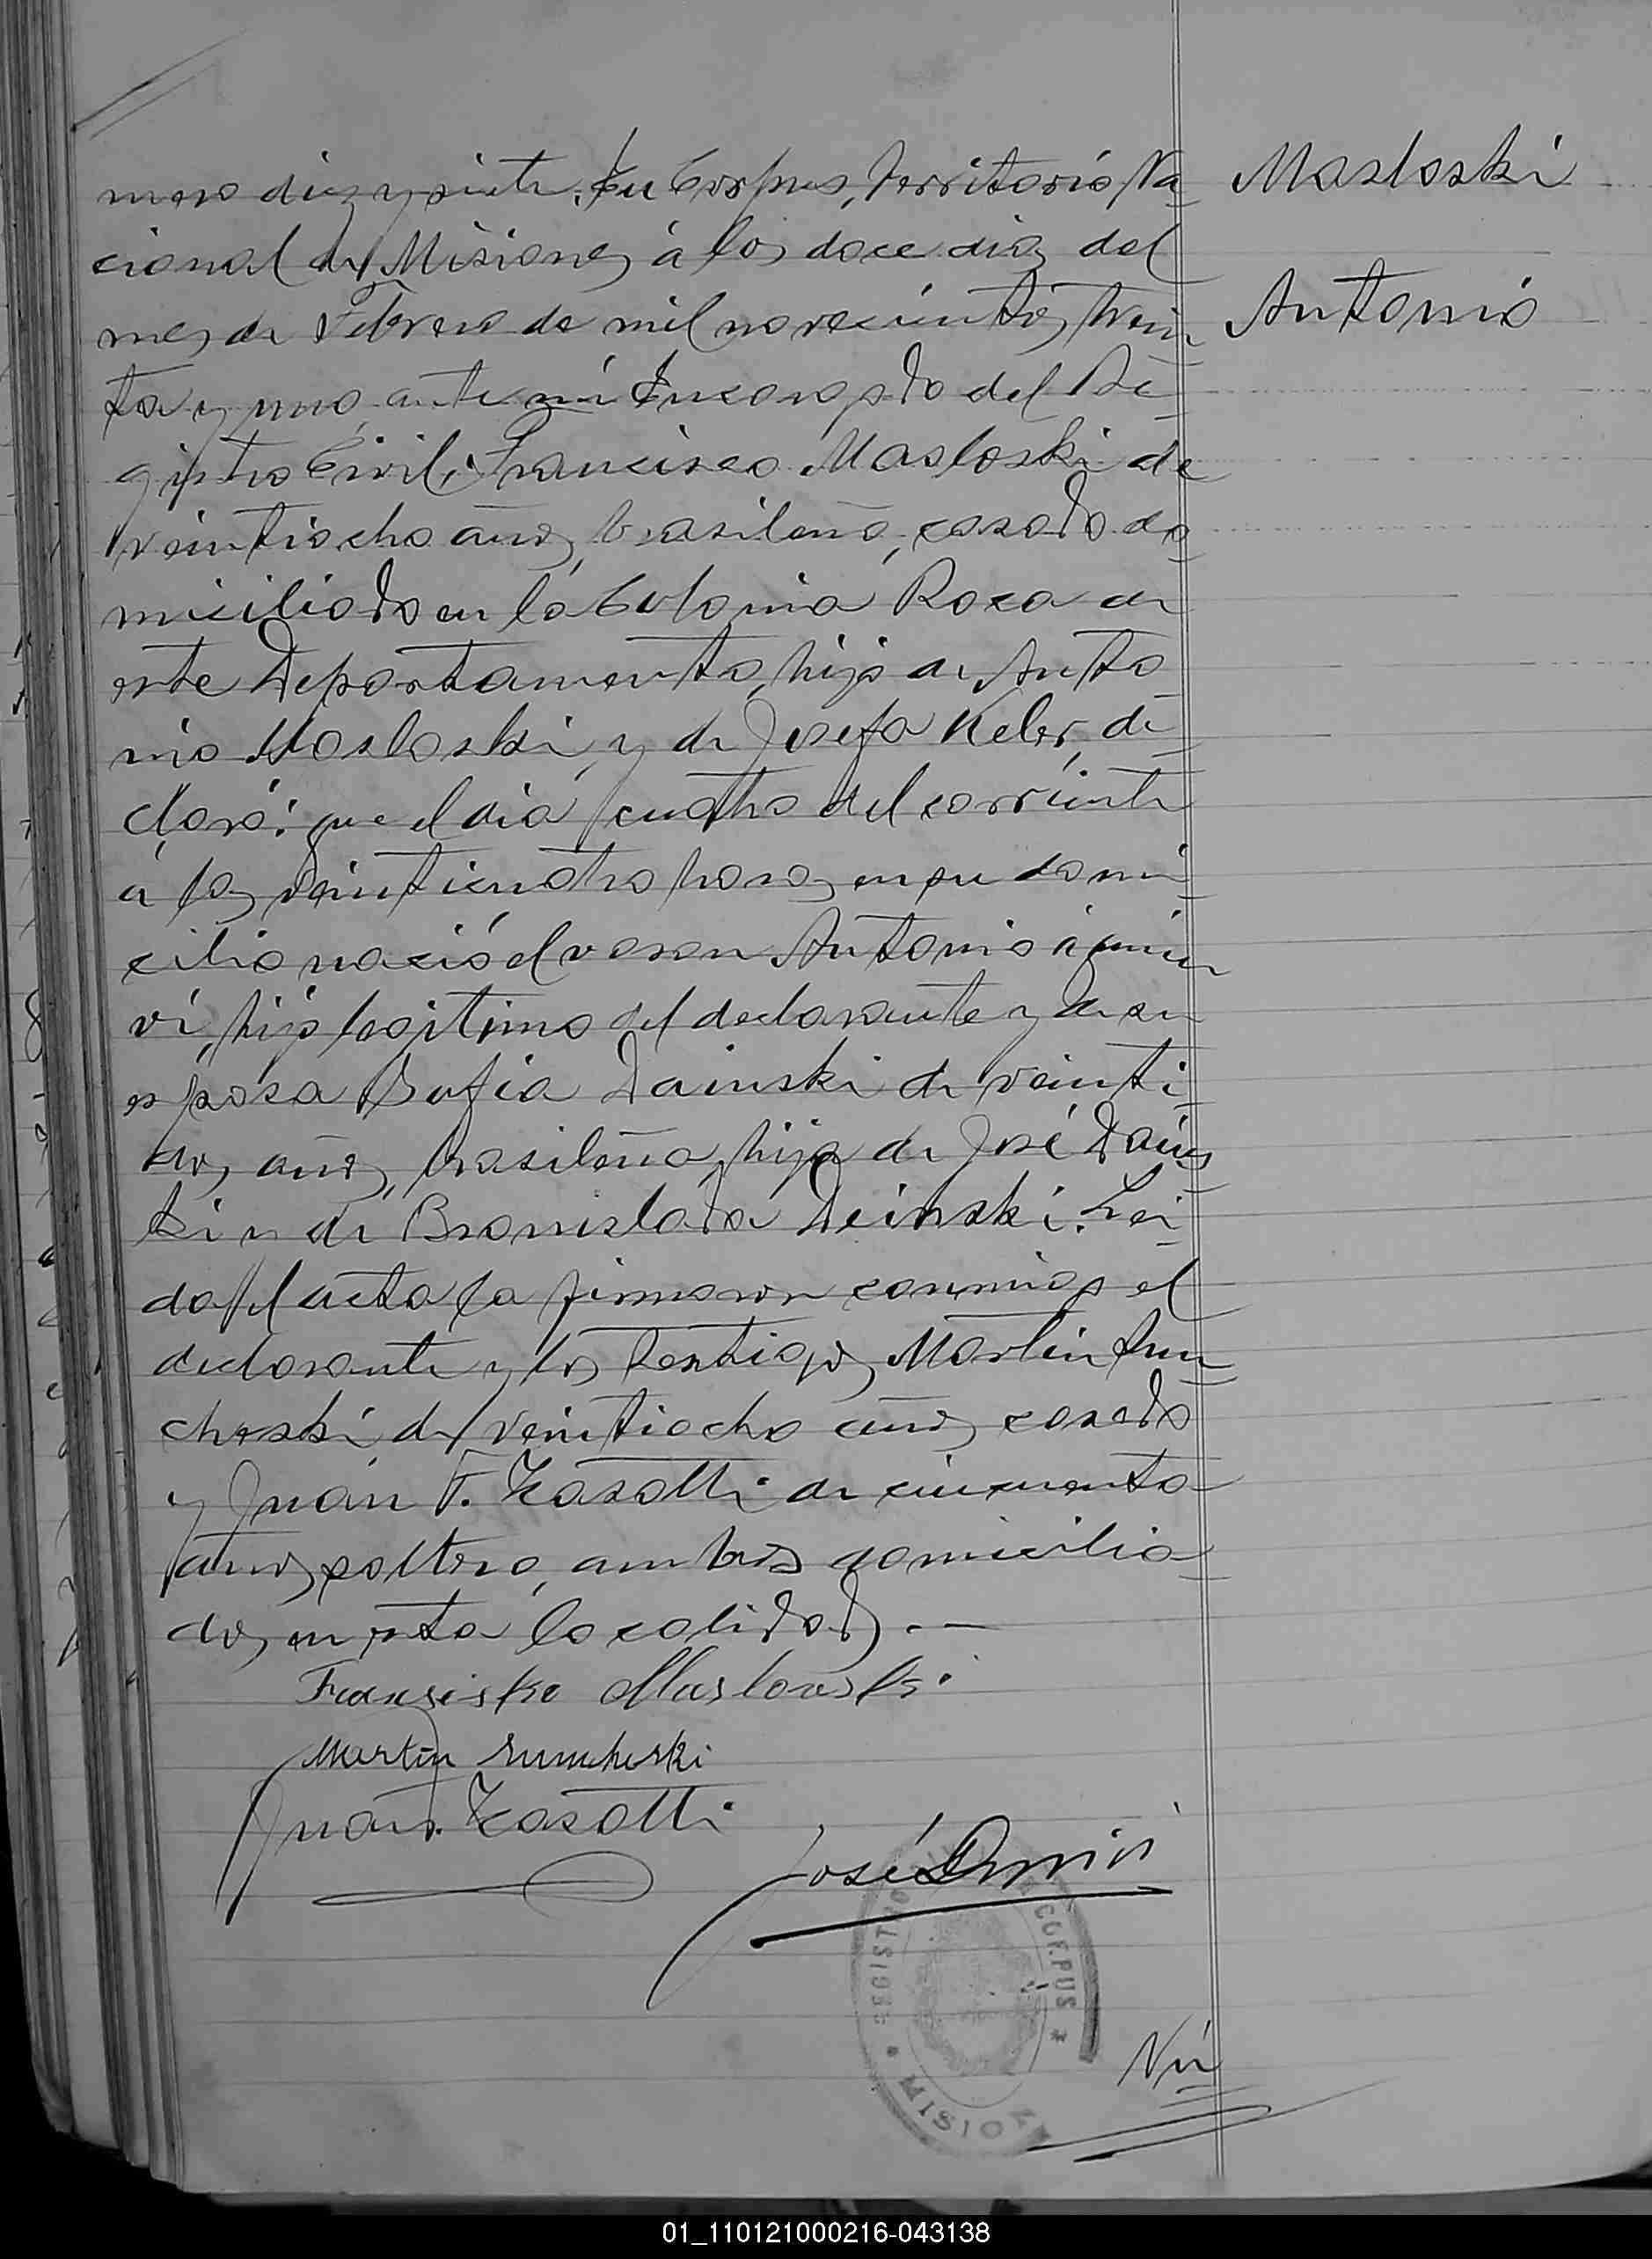 mero diez y siete. En Corpus, Territorio Na
Masloski
cional de Misiones á los doce dias del
Antonio
mes de Febrero de mil novecientos trein
ta y uno, ante mi Encargado del Re
gistro Civil, Francisco Masloski de
veintiocho años, brasileño, casado do
miciliado en la Colonia Roca de
este Departamento, hijo de Anto
nio Masloski y de Josefa Keler, de
claró: que el dia cuatro del corriente
á las veinticuatro horas, en su domi
cilio nació el varon Antonio á quien
ví, hijo legitimo del declarante y de su
esposa Sofia Dainski de veinti
dos años, brasileña, hija de José Dains
ki y de Bronislada Deinski. Lei
da el acta la firmaron conmigo el
declarante y los testigos, Martin
cheski de veintiocho años, casado
y Juan F. Zasotti de cincuenta
años, soltero, ambos domicilia
dos en esta localidad. —
Fransisko Maslowski
Martin
Juan F. Zasotti
José
REGISTRO CORPUS * MISIONES *
Nú
01_110121000216-043138